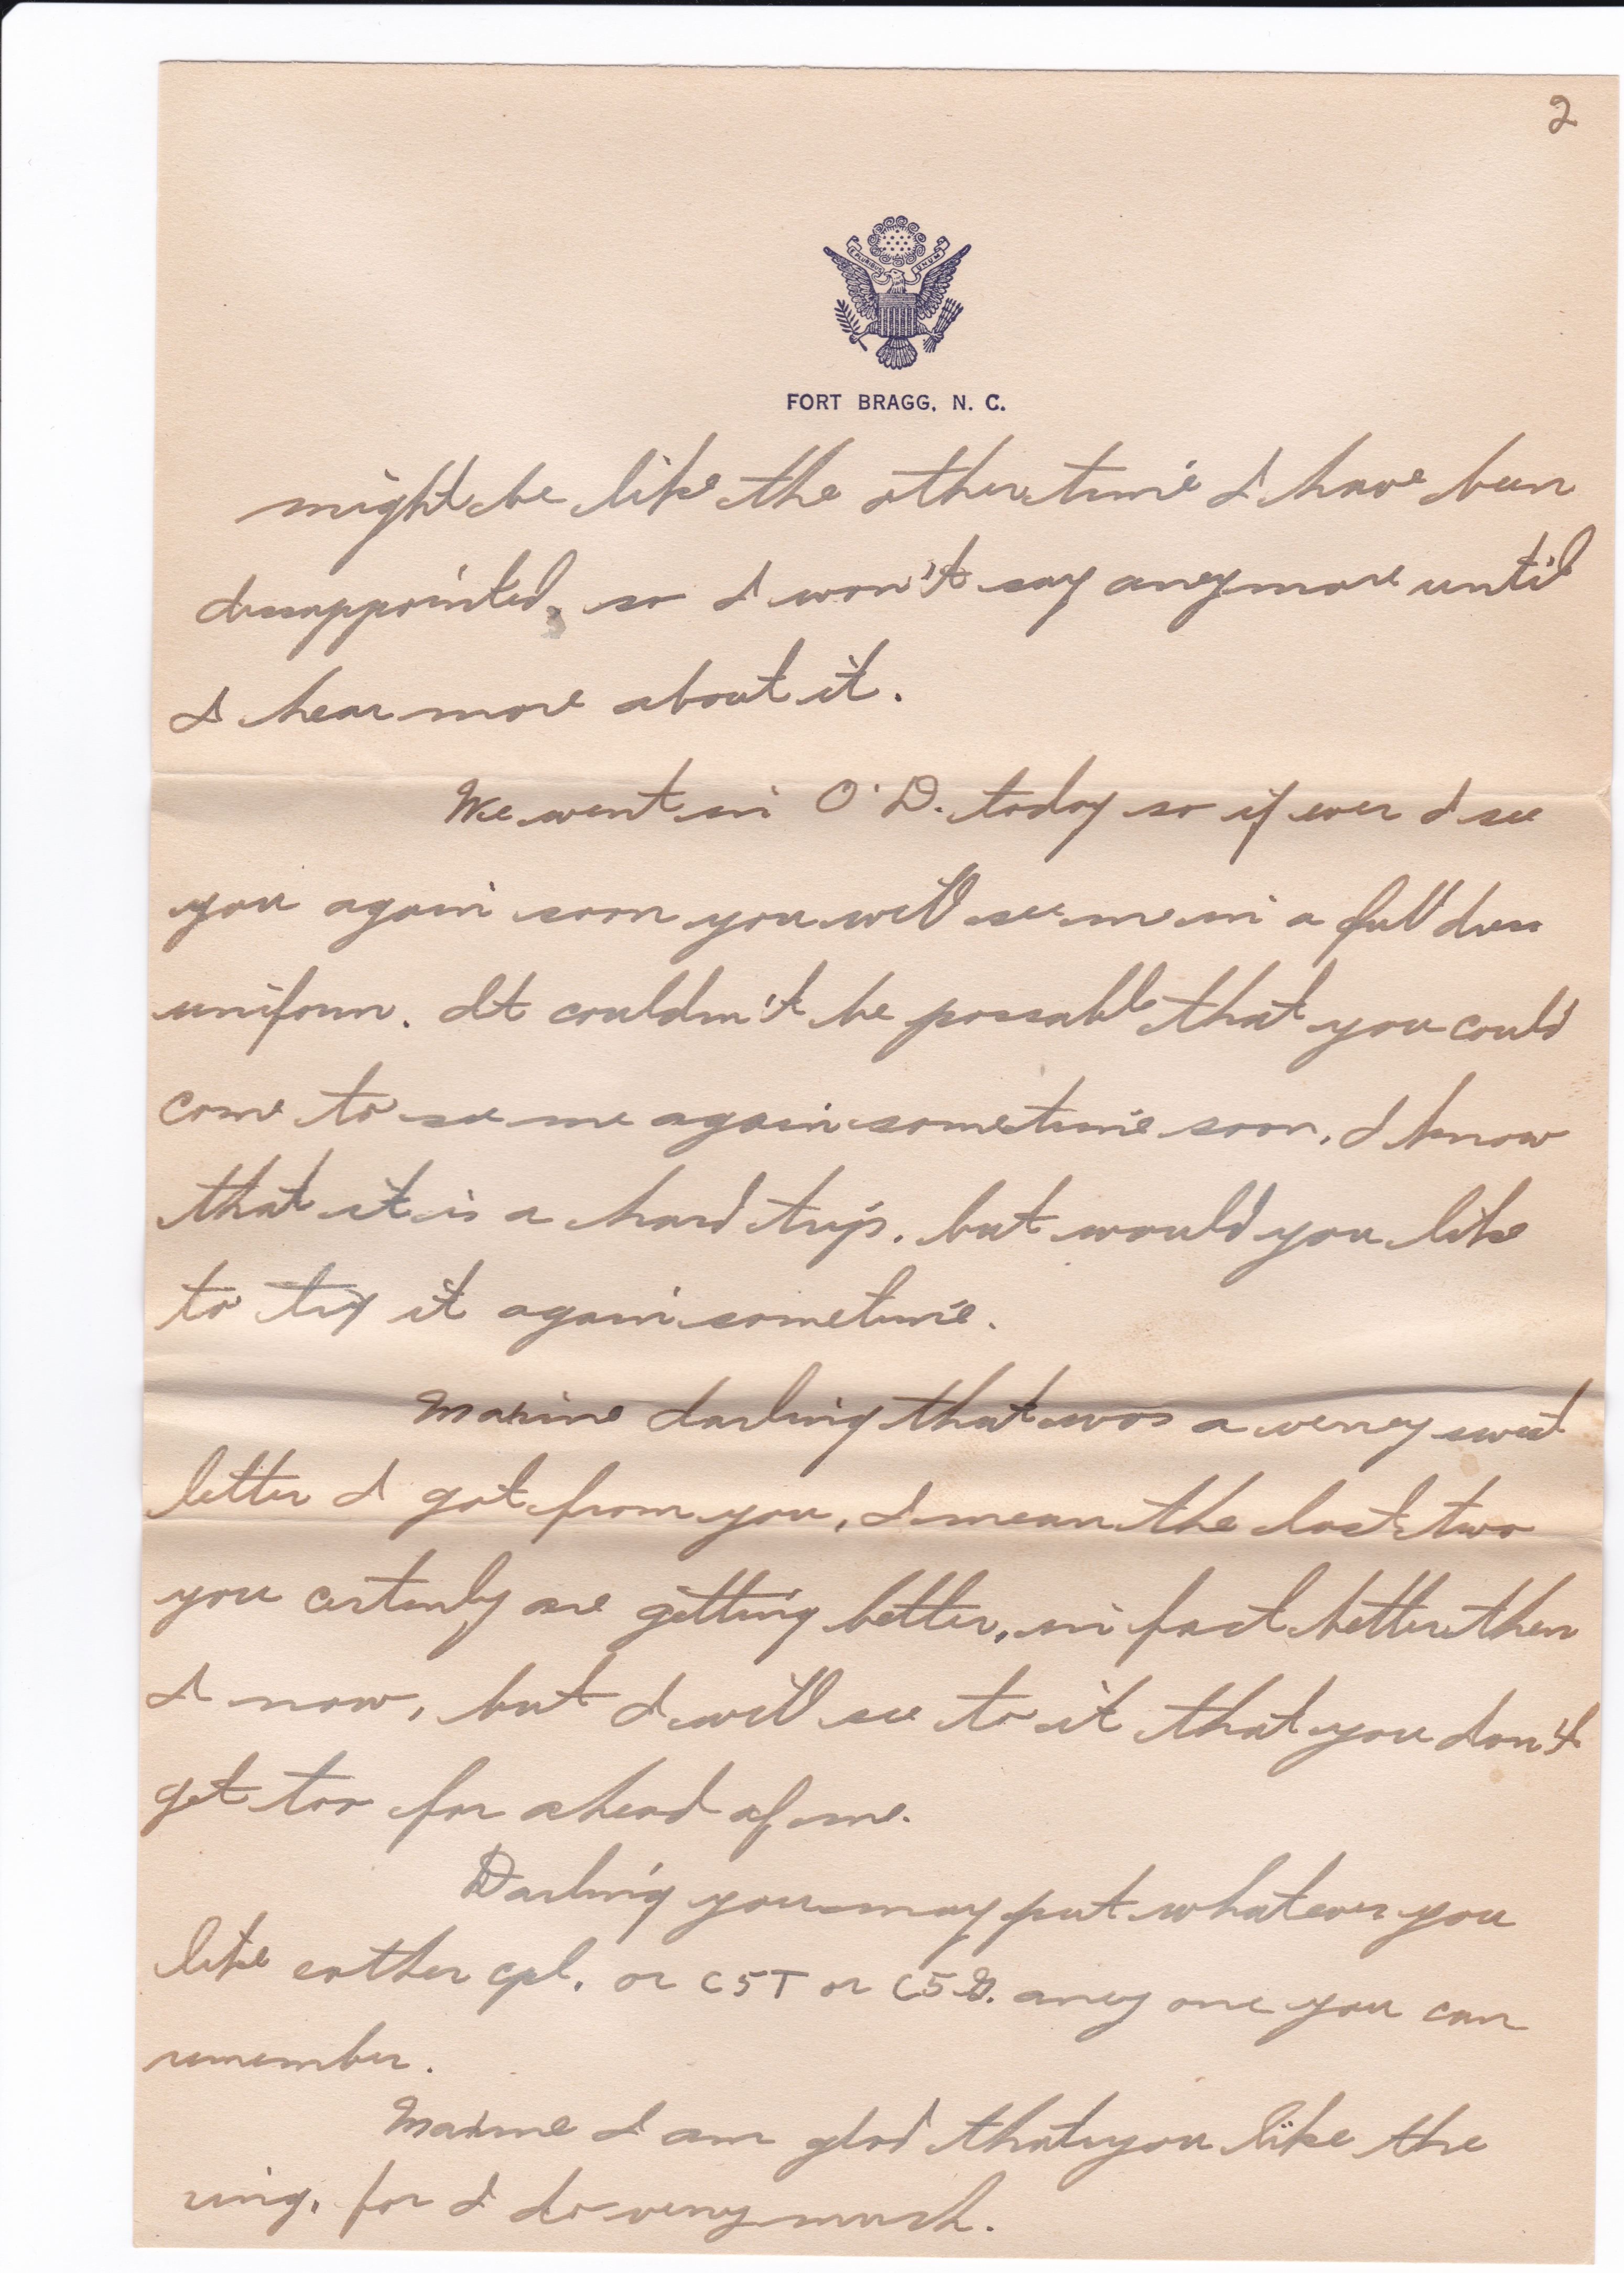 2
E PLURIBUS UNUM
FORT BRAGG, N. C.
might be like the other time I have been
dissappointed, so I won't say aneymore until
I hear more about it.
We went in O.D. today so if ever I see
you again soon you will see me in a full dress
uniform. It couldn't be possable that you could
come to see me again sometime soon, I know
that it is a hard trip, but would you like
to try it again sometime.
Maxine darling that was a verrey sweet
letter I got from you, I mean the last two
you certenly are getting better, in fact better then
I now, but I will see to it that you don't
get too far ahead of me.
Darling you may put whatever you
like eather cpl. or C5T or C5G. aney one you can
remember.
Maxine I am glad that you like the
ring, for I do verrey much.